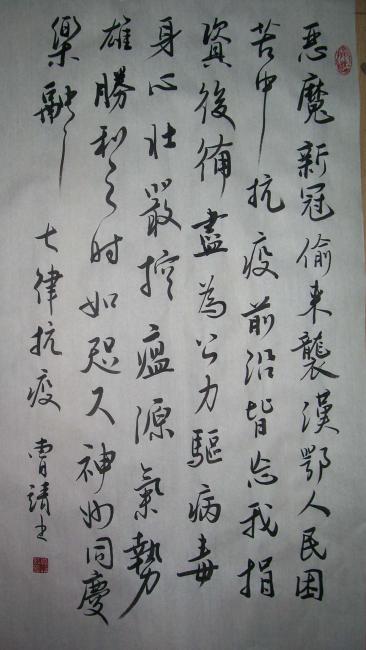 恶魔新冠偷来襲漢鄂人民困
苦中抗疫前沿皆忘我捐
資後備盡為公力驅病毒
身心壮嚴控瘟源氣勢
雄勝利之时如咫尺神州同慶
樂融々 七律抗疫 曹靖书